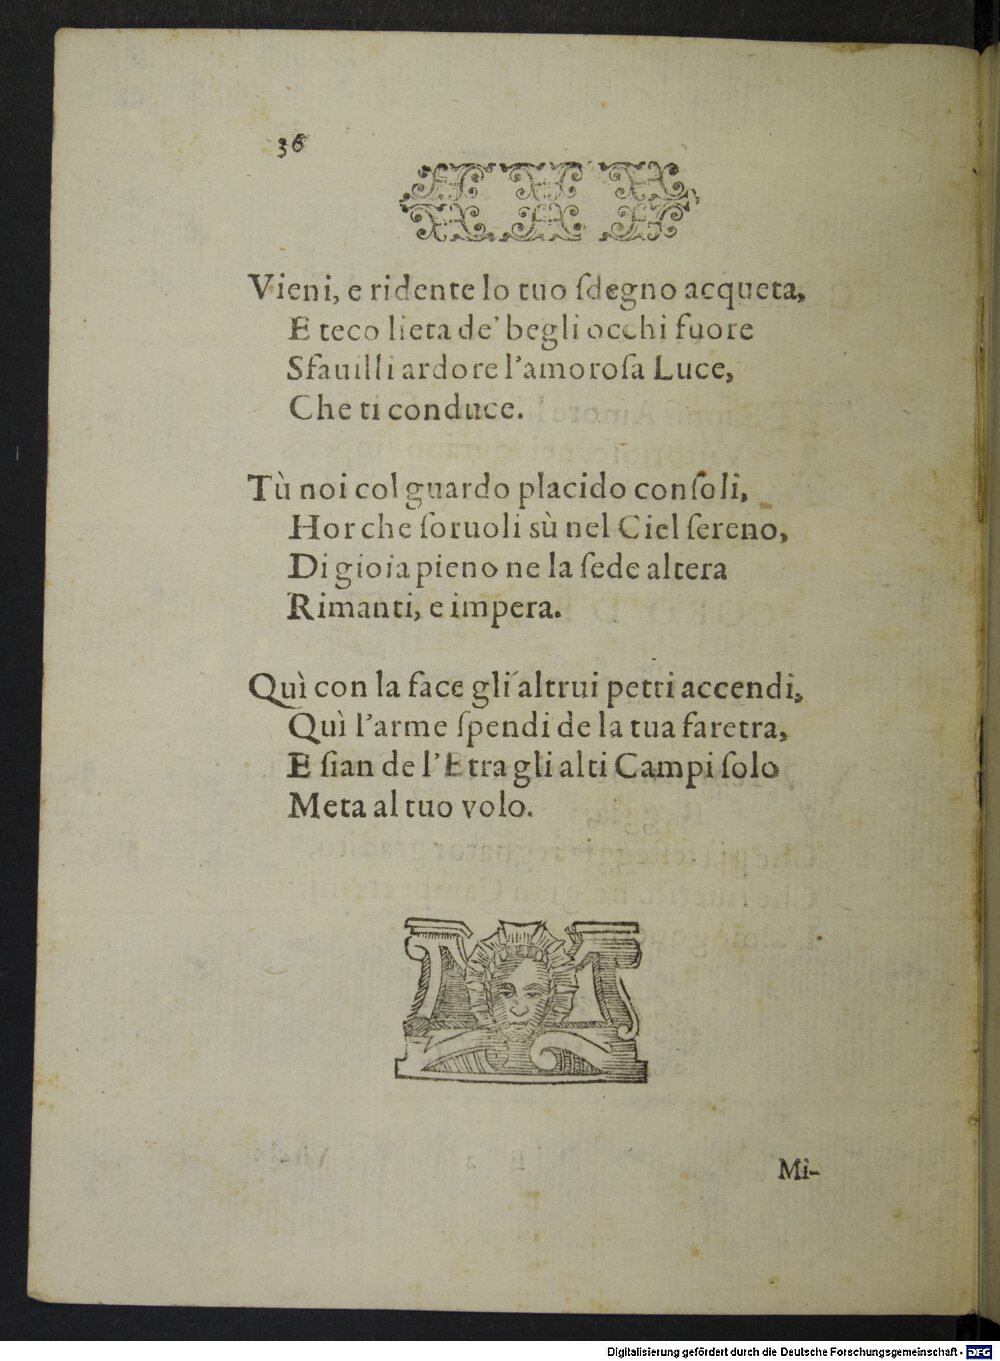 36
Vieni, e ridente lo tuo ſdegno acqueta,
E teco lieta de' begli occhi fuore
Sfauilli ardore l'amoroſa Luce,
Che ti conduce.
Tù noi col guardo placido conſoli,
Hor che ſoruoli sù nel Ciel ſereno,
Di gioia pieno ne la ſede altera
Rimanti, e impera.
Quì con la face gli altrui petti accendi,
Quì l'arme ſpendi de la tua faretra,
E ſian de l'Etra gli alti Campi ſolo
Meta al tuo volo.
Mi-
Digitalisierung gefördert durch die Deutsche Forschungsgemeinschaft - DFG